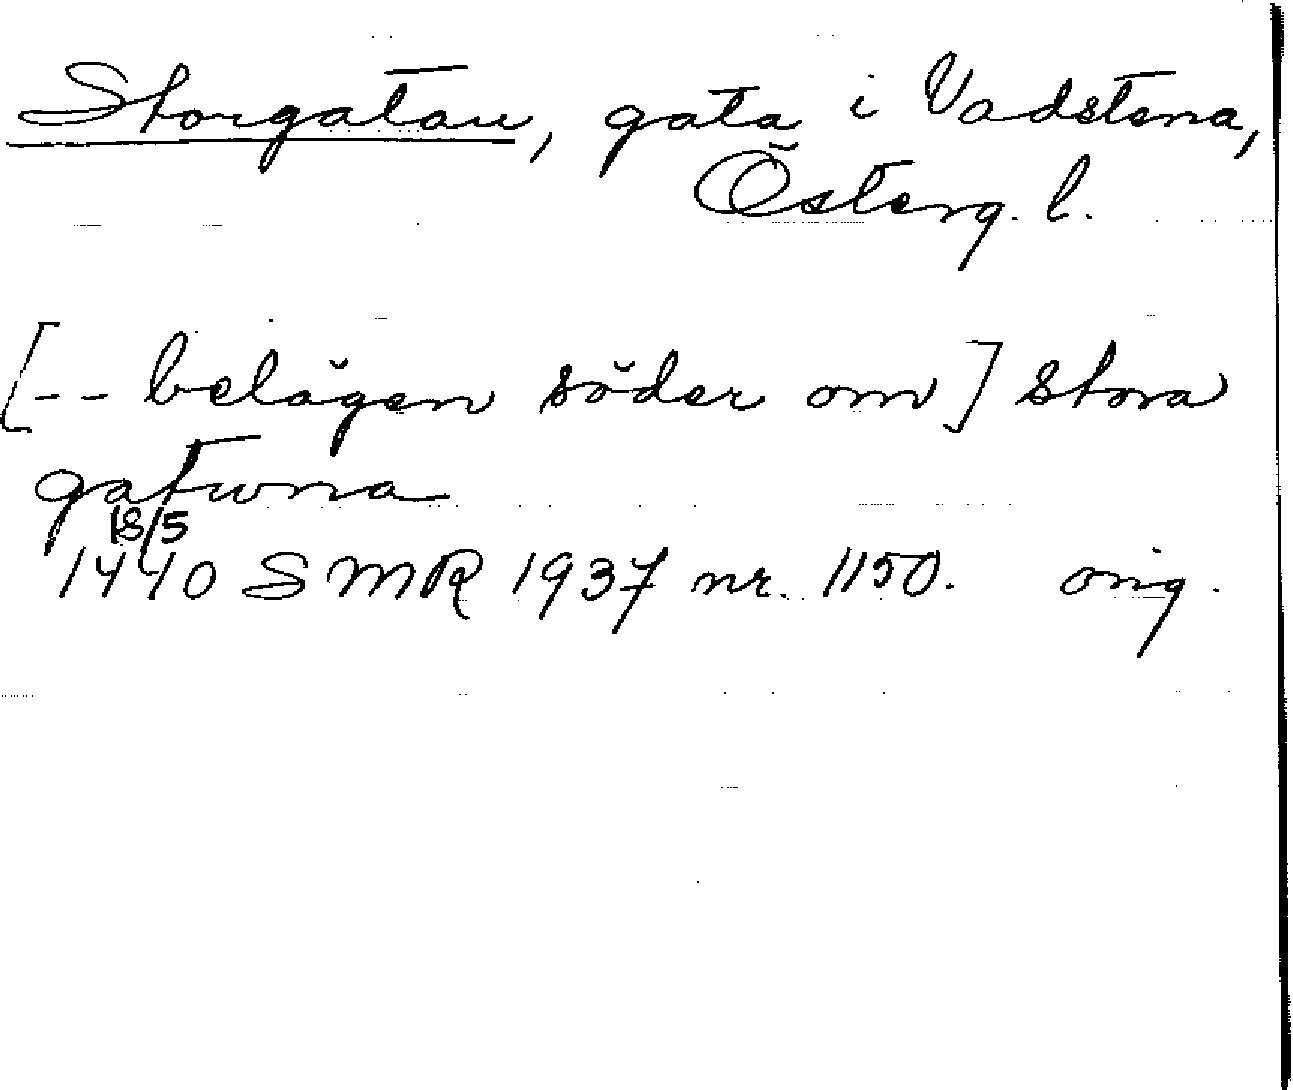 Storgatan, gata i Vadstena,
Österg. l.
[-- belägen söder om] stora
gatuna
18/5
1440 SMR 1937 nr. 1150. orig.